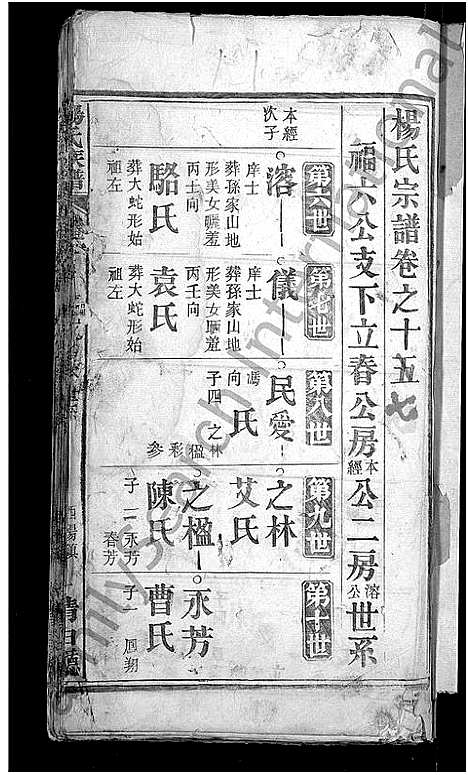 楊氏宗譜卷之十五 七
福六公支下立春公房本經公二房溶公世系
第六世
本經次子
溶
庠士
葬孫家山地形美女曬羞丙壬向
駱氏
葬大蛇形始祖左
第七世
儀
庠士
葬孫家山地形美女曬羞丙壬向
袁氏
葬大蛇形始祖左
第八世
民愛
馮氏
向
子四 之林 楹 彩 參
第九世
之林
艾氏
之楹
陳氏
子二 永芳 春芳
第十世
永芳
曹氏
子一
楊氏族譜
清白藏
FamilySearch International